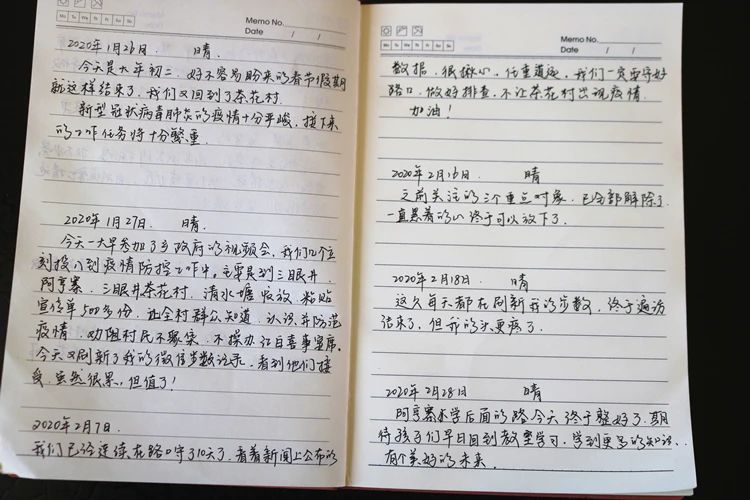 Memo No.
Mo Tu We Th Fr Sa Su
Date / /
2020年1月26日 晴
今天是大年初二，好不容易盼来的春节假期
就这样结束了，我们又回到了茶花村．
新型冠状病毒肺炎的疫情十分严峻，接下来
的工作任务将十分繁重．
2020年1月27日． 晴
今天一大早参加了乡政府的视频会，我们几个立
刻投入到疫情防控工作中。主要是到三眼井
阿亨寨、三眼井茶花村、清水塘发放、粘贴
宣传单500多份，让全村群众知道、认识并防范
疫情，劝阻村民不聚集、不操办红白喜事宴席。
今天又刷新了我的微信步数记录，看到他们接
受，虽然很累，但值了！
2020年2月7日．
我们已经连续在路口守了10天了，看着新闻上公布的
Memo No.
Mo Tu We Th Fr Sa Su
Date / /
数据，很揪心，任重道远，我们一定要守好
路口，做好排查，不让茶花村出现疫情．
加油！
2020年2月16日 晴
之前关注的三个重点对象，已全部解除了
一直悬着的心终于可以放下了．
2020年2月18日． 晴
这久每天都在刷新我的步数，终于遍访
结束了，但我的头更疼了．
2020年2月28日 晴
阿亨寨小学后面的路今天终于整好了，期
待孩子们早日回到教室学习，学到更多的知识、
有个美好的未来．